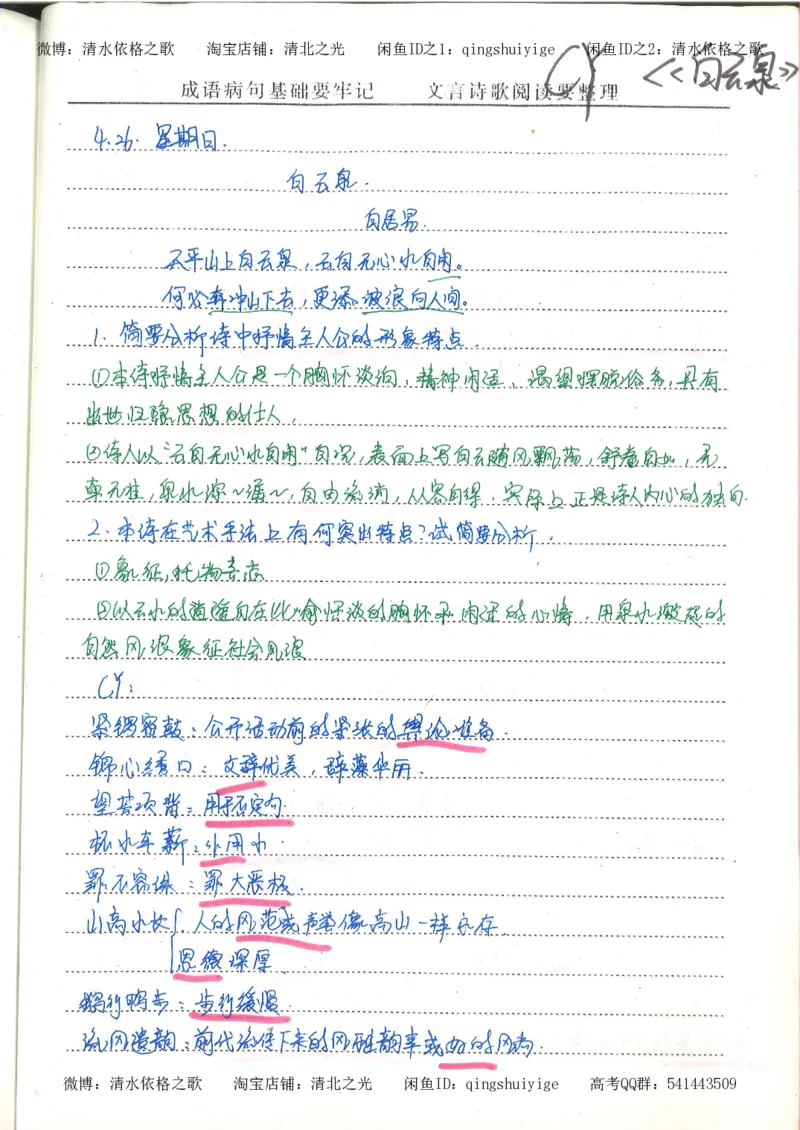 微博：清水依格之歌 淘宝店铺：清北之光 闲鱼ID之1：qingshuiyige 闲鱼ID之2：清水依格之歌
CY 《白云泉》
成语病句基础要牢记 文言诗歌阅读要整理
4.26. 星期日.
白云泉.
白居易.
天平山上白云泉，云自无心水自闲。
何必奔冲山下去，更添波浪向人间。
1. 简要分析诗中抒情主人公的形象特点.
①本诗抒情主人公是一个胸怀淡泊，精神闲适、渴望摆脱俗务，具有
出世归隐思想的仕人，
②诗人以“云自无心水自闲”自况，表面上写白云随风飘荡，舒卷自如，无
牵无挂，泉水潺~潺~，自由流淌，从容自得，实际上正是诗人内心的独白.
2. 本诗在艺术手法上有何突出特点？试简要分析.
①象征，托物寄志
②以云水的逍遥自在比喻恬淡的胸怀和闲适的心情，用泉水激起的
自然风浪象征社会风浪
CY：
紧锣密鼓：公开活动前的紧张的舆论准备.
锦心绣口：文辞优美，辞藻华丽.
望其项背：用于否定句.
杯水车薪：小用小.
罪不容诛：罪大恶极.
山高水长 人的风范或声誉像高山一样永存
恩德深厚
鹅行鸭步：步行缓慢
流风遗韵：前代流传下来的风雅韵事或好的风尚.
微博：清水依格之歌 淘宝店铺：清北之光 闲鱼ID：qingshuiyige 高考QQ群：541443509